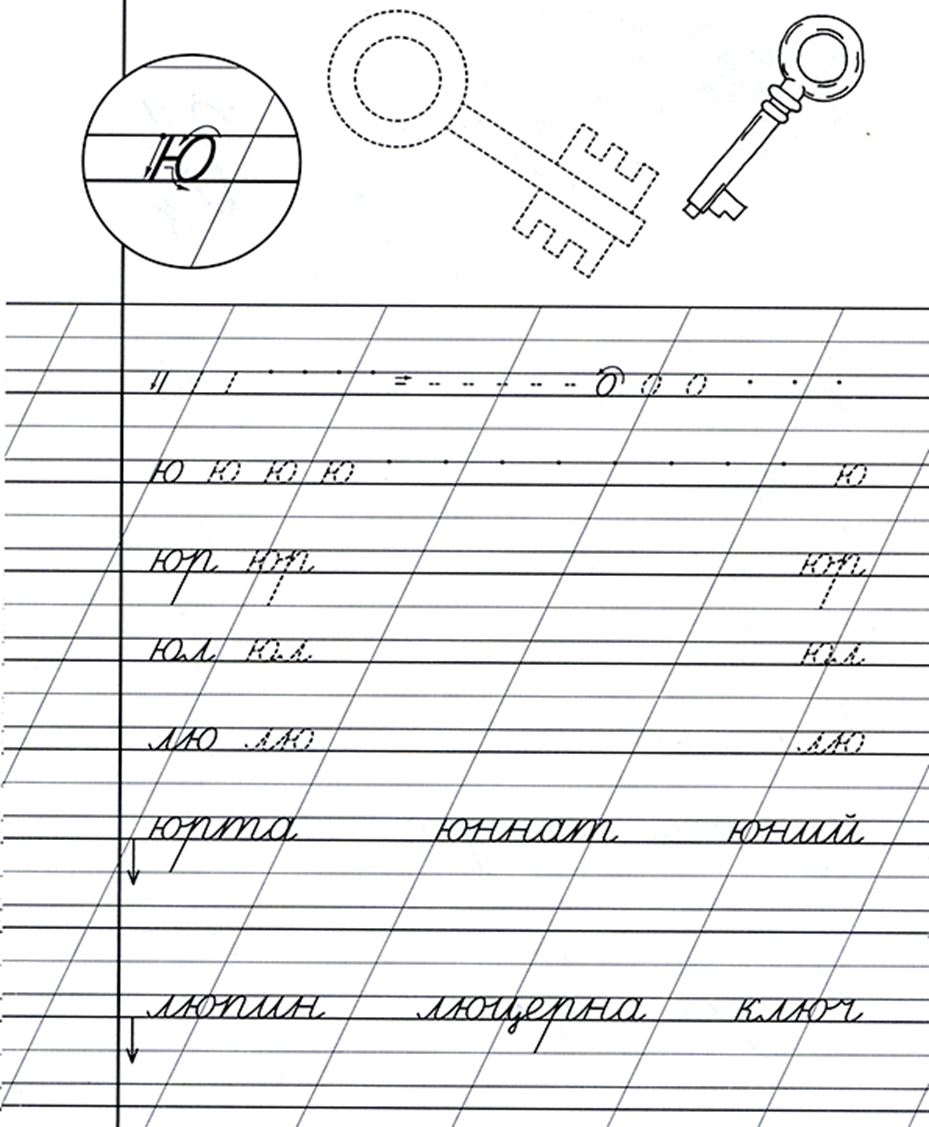 ю
ю ю ю ю ю
юр юр юр
юл юл юл
лю лю лю
юрта юннат юний
люпин люцерна ключ